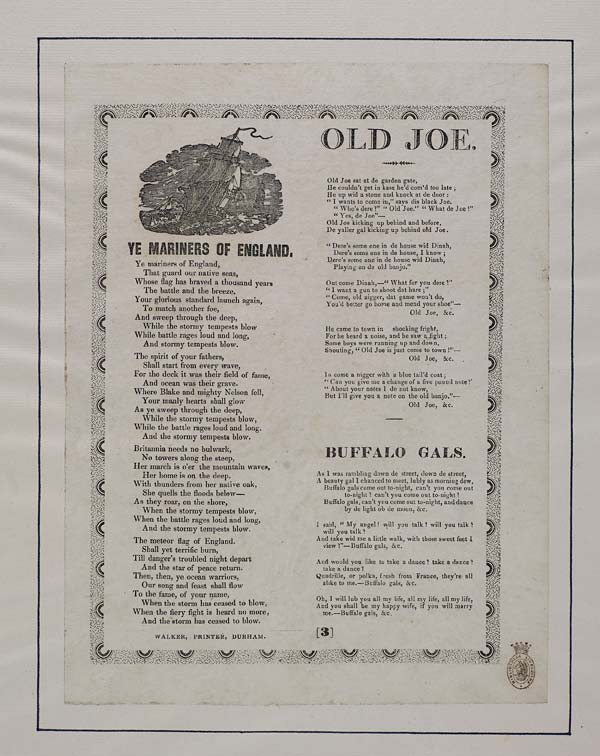 YE MARINERS OF ENGLAND.
Ye mariners of England,
That guard our native seas,
Whose flag has braved a thousand years
The battle and the breeze,
Your glorious standard launch again,
To match another foe,
And sweep through the deep,
While the stormy tempests blow
While battle rages loud and long,
And stormy tempests blow.
The spirit of your fathers,
Shall start from every wave,
For the deck it was their field of fame,
And ocean was their grave.
Where Blake and mighty Nelson fell,
Your manly hearts shall glow
As ye sweep through the deep,
While the stormy tempests blow,
While the battle rages loud and long.
And the stormy tempests blow.
Britannia needs no bulwark,
No towers along the steep,
Her march is o'er the mountain waves,
Her home is on the deep.
With thunders from her native oak,
She quells the floods below—
As they roar, on the shore,
When the stormy tempests blow,
When the battle rages loud and long,
And the stormy tempests blow.
The meteor flag of England.
Shall yet terrific burn,
Till danger's troubled night depart
And the star of peace return.
Then, then, ye ocean warriors,
Our song and feast shall flow
To the fame, of your name,
When the storm has ceased to blow,
When the fiery fight is heard no more,
And the storm has ceased to blow.
WALKER, PRINTER, DURHAM.
OLD JOE.
Old Joe sat at de garden gate,
He couldn't get in kase he'd com'd too late ;
He up wid a stone and knock at de door :
" I wants to come in," says dis black Joe.
" Who's dere ?" " Old Joe." " What de Joe ?"
" Yes, de Joe"—
Old Joe kicking up behind and before,
De yaller gal kicking up behind old Joe.
" Dere's some one in de house wid Dinah,
Dere's some one in de house, I know ;
Dere's some one in de house wid Dinah,
Playing on de old banjo."
Out come Dinah,—" What for you dere ?"
" I want a gun to shoot dat hare ;"
" Come, old nigger, dat game won't do,
You'd better go home and mend your shoe"—
Old Joe, &c.
He came to town in shocking fright,
For he heard a noise, and he saw a fight ;
Some boys were running up and down,
Shouting, " Old Joe is just come to town !"—
Old Joe, &c.
In come a nigger with a blue tail'd coat ;
" Can you give me a change of a five pound note ?'
" About your notes I do not know,
But I'll give you a note on the old banjo."—
Old Joe, &c.
BUFFALO GALS.
As I was rambling down de street, down de street,
A beauty gal I chanced to meet, lubly as morning dew,
Buffalo gals come out to-night, can't you come out
to-night ? can't you come out to-night ?
Buffalo gals, can't you come out to-night, and dance
by de light ob de moon, &c.
I said, " My angel ! will you talk ? will you talk ?
will you talk ?
And take wid me a little walk, with those sweet feet I
view ?"—Buffalo gals, &c.
And would you like to take a dance ? take a dance ?
take a dance ?
Quadrille, or polka, fresh from France, they're all
alike to me.—Buffalo gals, &c.
Oh, I will lub you all my life, all my life, all my life,
And you shall be my happy wife, if you will marry
me.—Buffalo gals, &c.
[3]